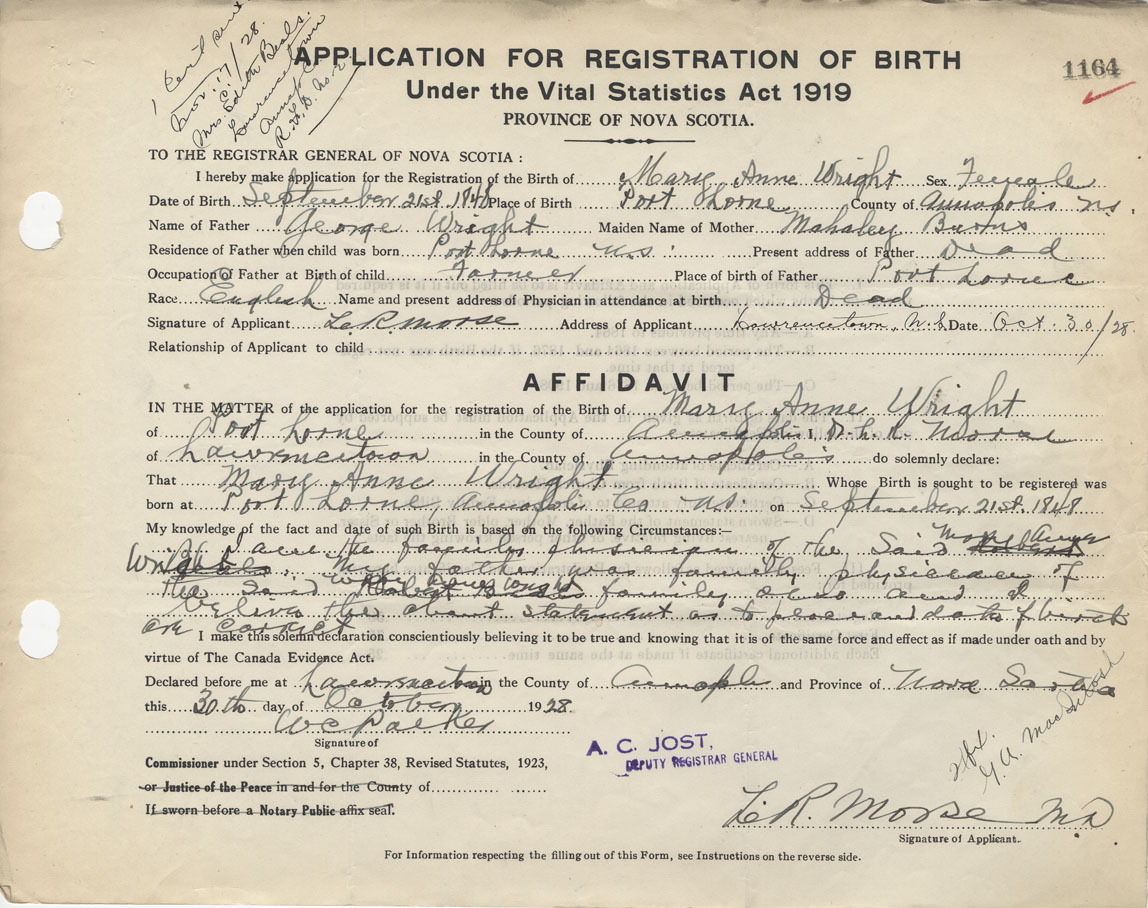 1 Cert sent
Nov. 17/28.
Mrs. Edith Beals.
Lawrencetown
Annap. Co.
R.F.D. No 2
APPLICATION FOR REGISTRATION OF BIRTH
1164
Under the Vital Statistics Act 1919
PROVINCE OF NOVA SCOTIA.
TO THE REGISTRAR GENERAL OF NOVA SCOTIA :
I hereby make application for the Registration of the Birth of Mary Anne Wright Sex Female
Date of Birth September 21st. 1848 Place of Birth Port Lorne County of Annapolis N.S.
Name of Father George Wright Maiden Name of Mother Mahaley Burns
Residence of Father when child was born Port Lorne N.S. Present address of Father Dead
Occupation of Father at Birth of child Farmer Place of birth of Father Port Lorne
Race English Name and present address of Physician in attendance at birth Dead
Signature of Applicant L. R. Morse Address of Applicant Lawrencetown, N.S. Date Oct. 30/28.
Relationship of Applicant to child
AFFIDAVIT
IN THE MATTER of the application for the registration of the Birth of Mary Anne Wright
of Port Lorne in the County of Annapolis I, L. R. Morse
of Lawrencetown in the County of Annapolis do solemnly declare:
That Mary Anne Wright Whose Birth is sought to be registered was
born at Port Lorne, Annapolis Co N.S. on September 21st. 1848
My knowledge of the fact and date of such Birth is based on the following Circumstances:—
I am the family physician of the said Mary Anne
Wright. My father was family physician of
the said family also and I
believe the above statement as to place and date of birth
are correct
I make this solemn declaration conscientiously believing it to be true and knowing that it is of the same force and effect as if made under oath and by
virtue of The Canada Evidence Act.
Declared before me at Lawrencetown in the County of Annapolis and Province of Nova Scotia
this 30th day of October 1928.
W C Parker
Signature of
A. C. JOST,
DEPUTY REGISTRAR GENERAL
G. A. MacIntosh
Commissioner under Section 5, Chapter 38, Revised Statutes, 1923,
or Justice of the Peace in and for the County of
If sworn before a Notary Public affix seal.
L. R. Morse M.D
Signature of Applicant.
For Information respecting the filling out of this Form, see Instructions on the reverse side.